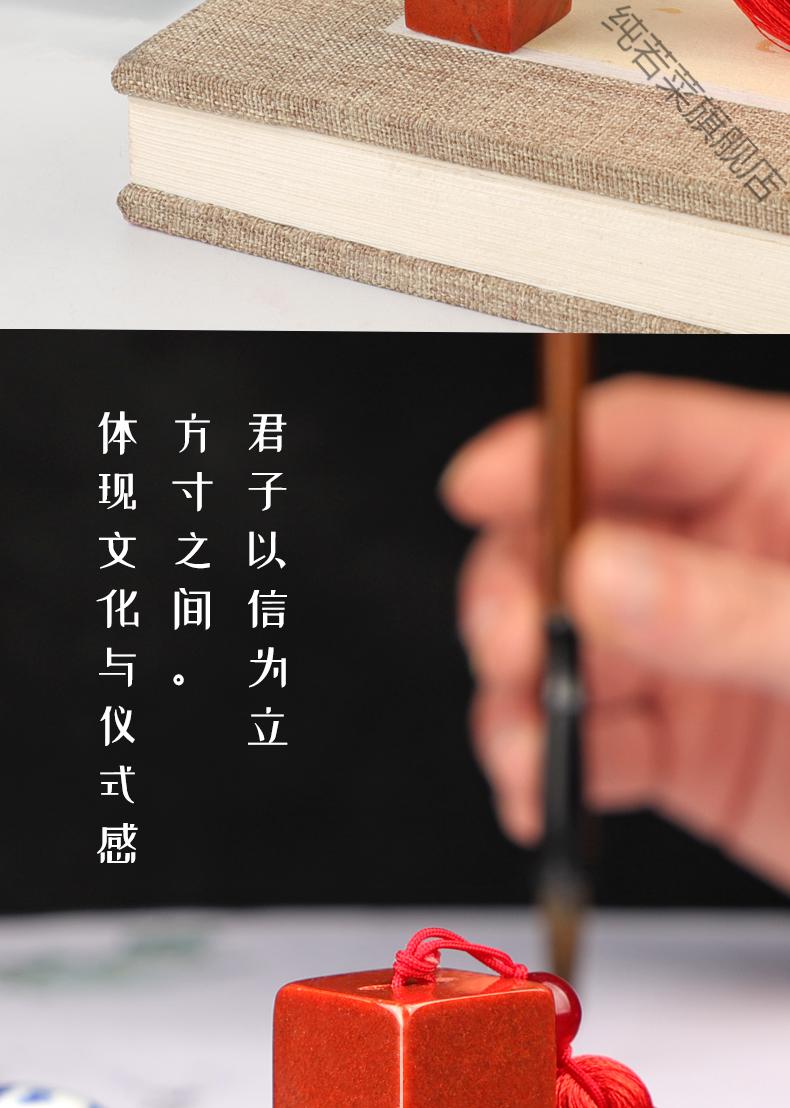 纯若菜旗舰店
君子以信为立
方寸之间。
体现文化与仪式感